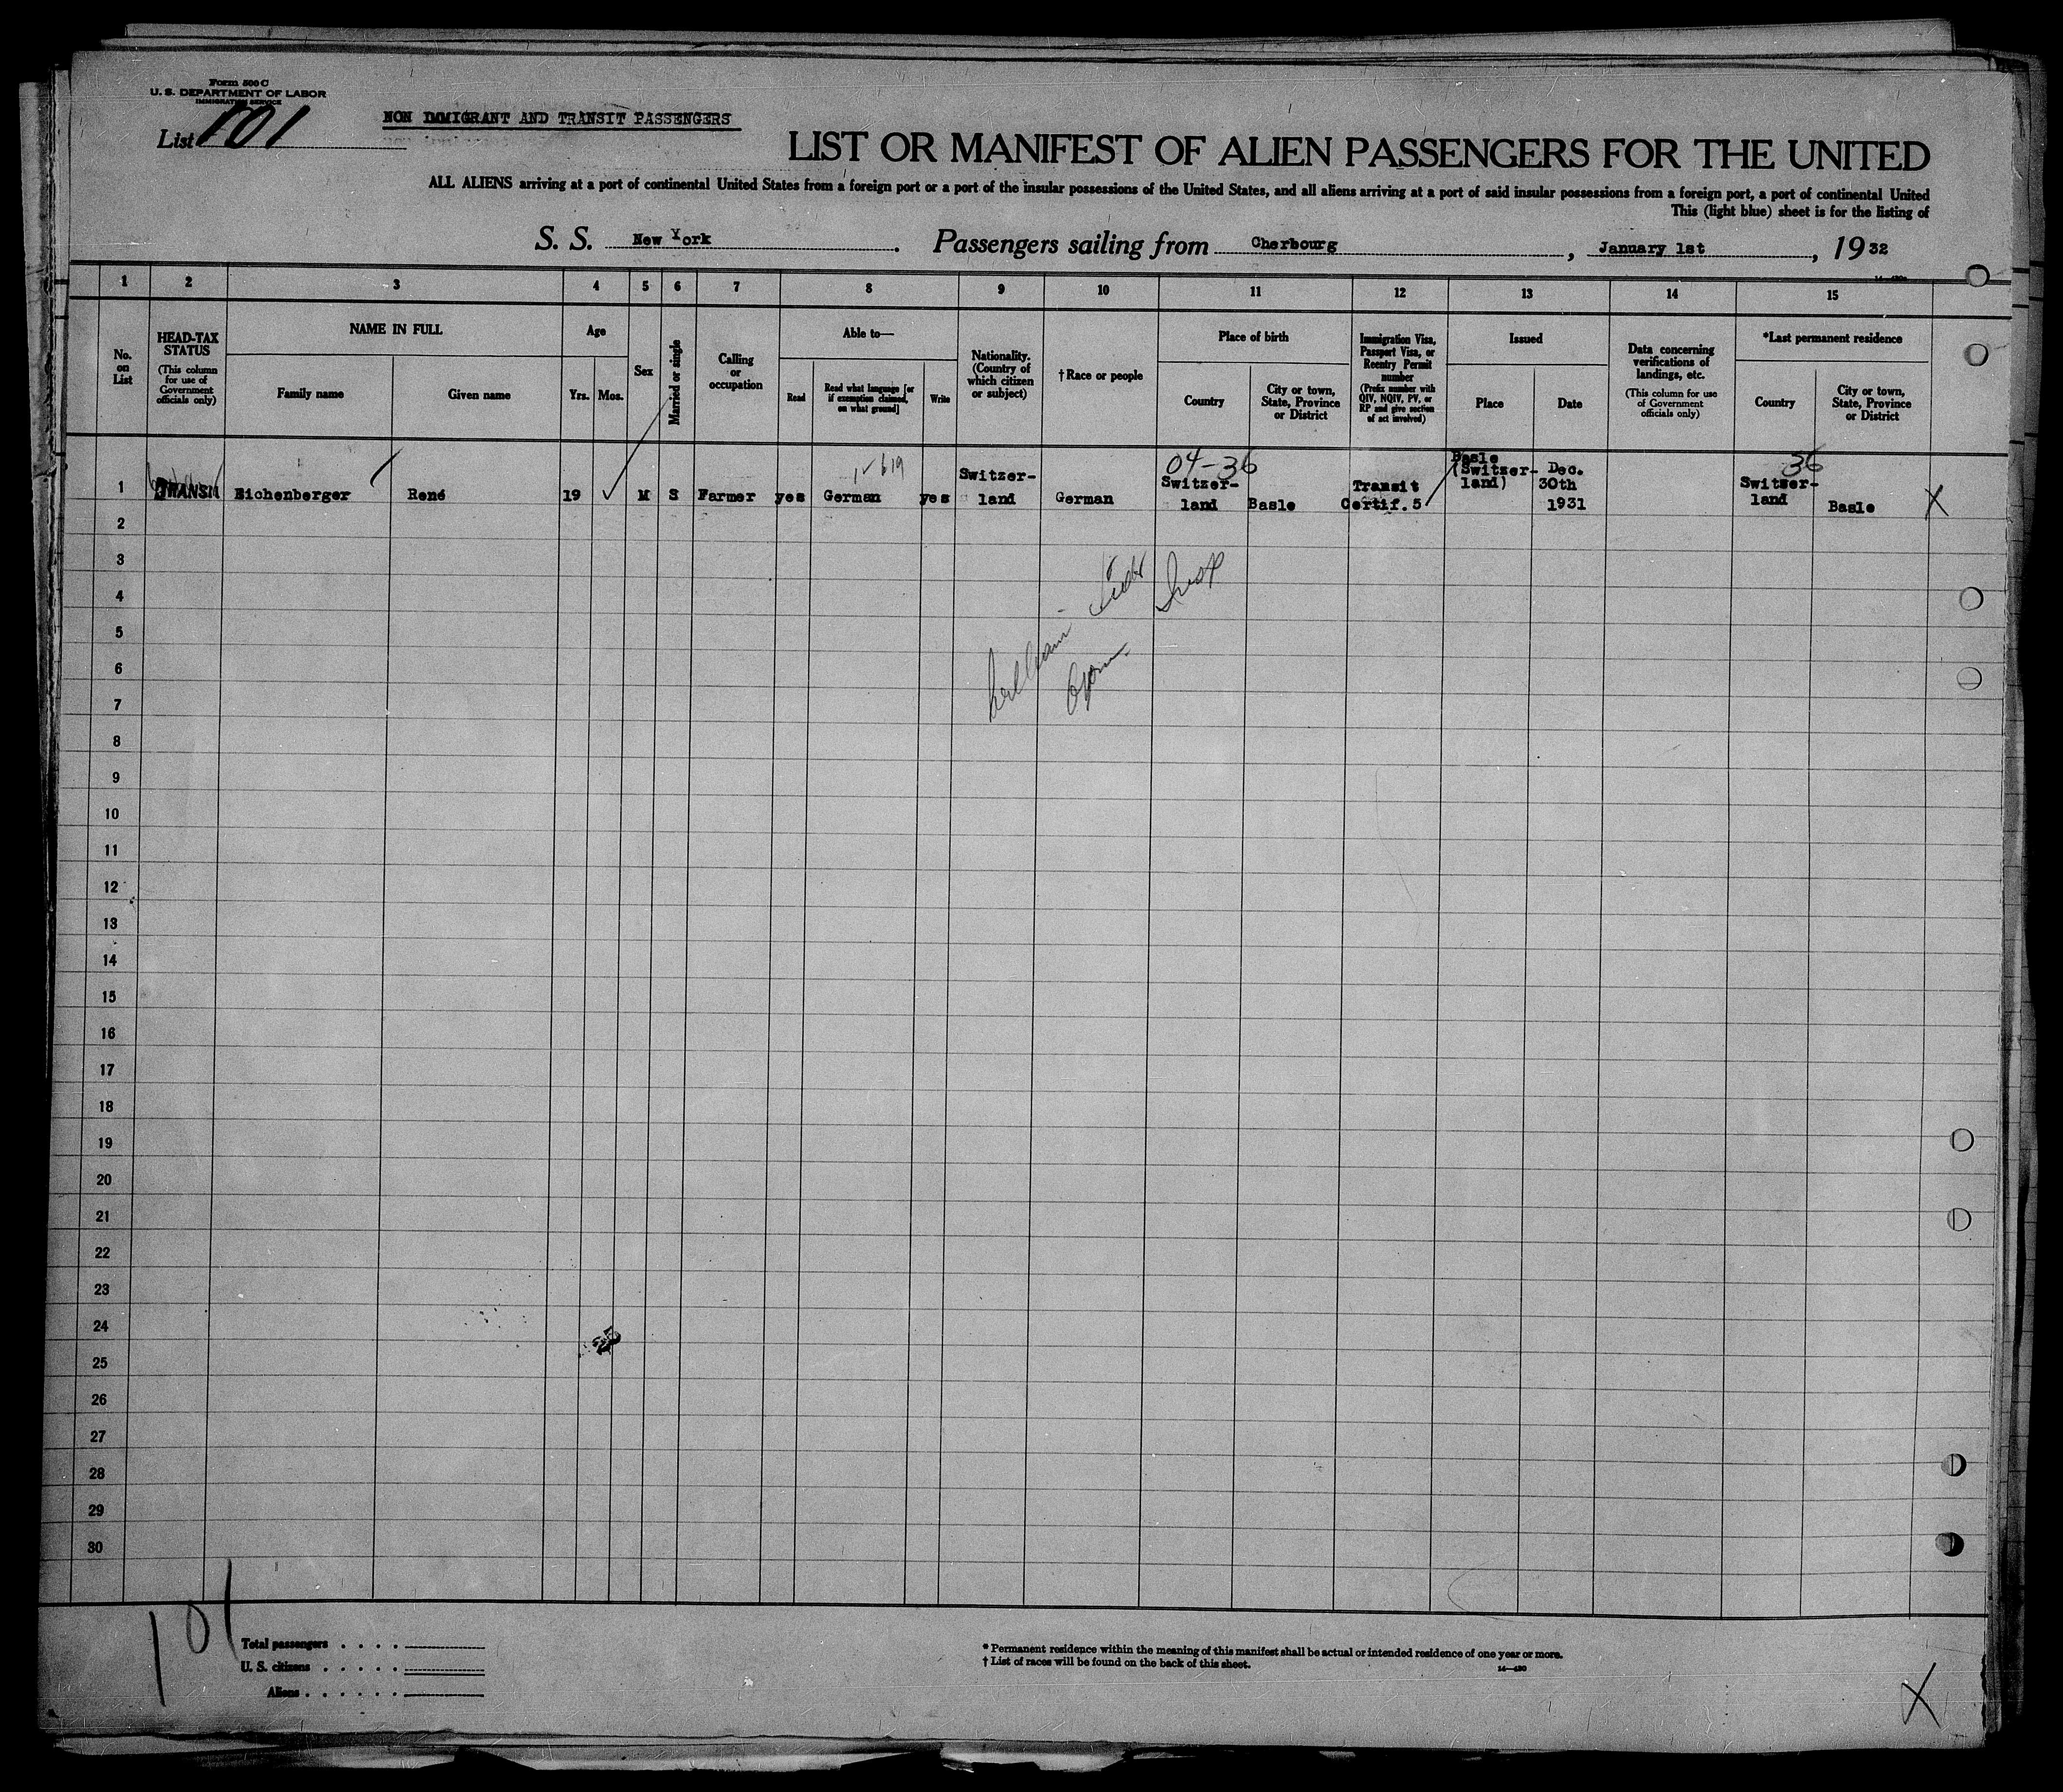 Form 500 C
U. S. DEPARTMENT OF LABOR
IMMIGRATION SERVICE
List 101
NON IMMIGRANT AND TRANSIT PASSENGERS
LIST OR MANIFEST OF ALIEN PASSENGERS FOR THE UNITED
ALL ALIENS arriving at a port of continental United States from a foreign port or a port of the insular possessions of the United States, and all aliens arriving at a port of said insular possessions from a foreign port, a port of continental United
This (light blue) sheet is for the listing of
S. S. New York. Passengers sailing from Cherbourg, January 1st, 1932
1 2 3 4 5 6 7 8 9 10 11 12 13 14 15
No. on List
HEAD-TAX STATUS
(This column for use of Government officials only)
NAME IN FULL
Family name
Given name
Age
Yrs. Mos.
Sex
Married or single
Calling or occupation
Able to—
Read
Read what language [or if exemption claimed, on what ground]
Write
Nationality. (Country of which citizen or subject)
† Race or people
Place of birth
Country
City or town, State, Province or District
Immigration Visa, Passport Visa, or Reentry Permit number
(Prefix number with QIV, NQIV, PV, or RP and give section of act involved)
Issued
Place
Date
Data concerning verifications of landings, etc.
(This column for use of Government officials only)
*Last permanent residence
Country
City or town, State, Province or District
1 Eichenberger René 19 ✓ M S Farmer yes German yes Switzer-land German 04-36 Switzer-land Basle Transit Certif. 5 Basle (Switzer-land) Dec. 30th 1931 36 Switzer-land Basle X
2
3
4
5
6
7
8
9
10
11
12
13
14
15
16
17
18
19
20
21
22
23
24
25
26
27
28
29
30
101
Total passengers . . . .
U. S. citizens . . . . .
Aliens . . . . . .
* Permanent residence within the meaning of this manifest shall be actual or intended residence of one year or more.
† List of races will be found on the back of this sheet.
14—430
X